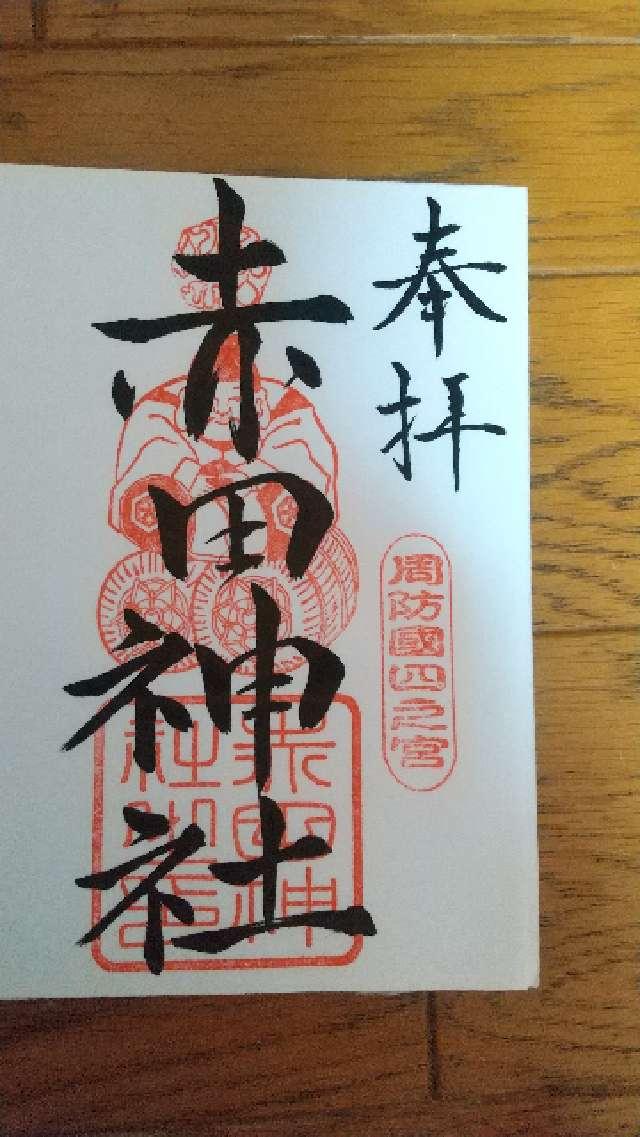 奉拝
周防國四之宮
赤田神社
赤田神
社之印